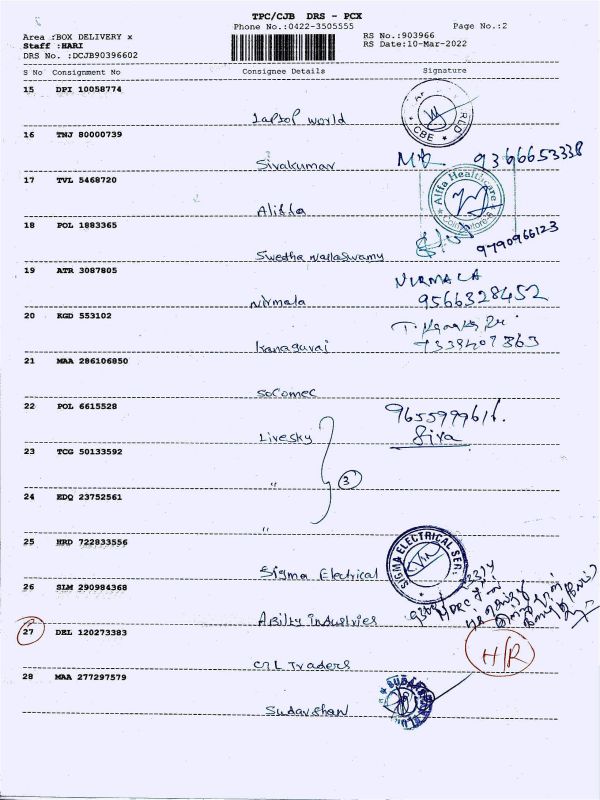 TPC/CJB DRS - PCX
Phone No.:0422-3505555
Page No.:2
Area :BOX DELIVERY x
RS No.:903966
Staff :HARI
RS Date:10-Mar-2022
DRS No. :DCJB90396602
S No Consignment No Consignee Details Signature
15 DPI 10058774
Laptop World
CBE
16 TNJ 80000739
Sivakumar 9366653338
17 TVL 5468720
Alffa Healthcare
Coimbatore
Aliffa
18 POL 1883365
Swedha Nallaswamy 9790966123
19 ATR 3087805
NIRMALA
Nirmala 9566328452
20 KGD 553102
Kanagaraj
21 MAA 286106850
Socomec
22 POL 6615528
9655999616.
Livesky Siva
23 TCG 50133592
" 3
24 EDQ 23752561
"
25 HRD 722833556
SIGMA ELECTRICAL SER:
Sigma Electrical
26 SLM 290984368
Ability industries
27 DEL 120273383
H/R
CTL Traders
28 MAA 277297579
Sudarshan